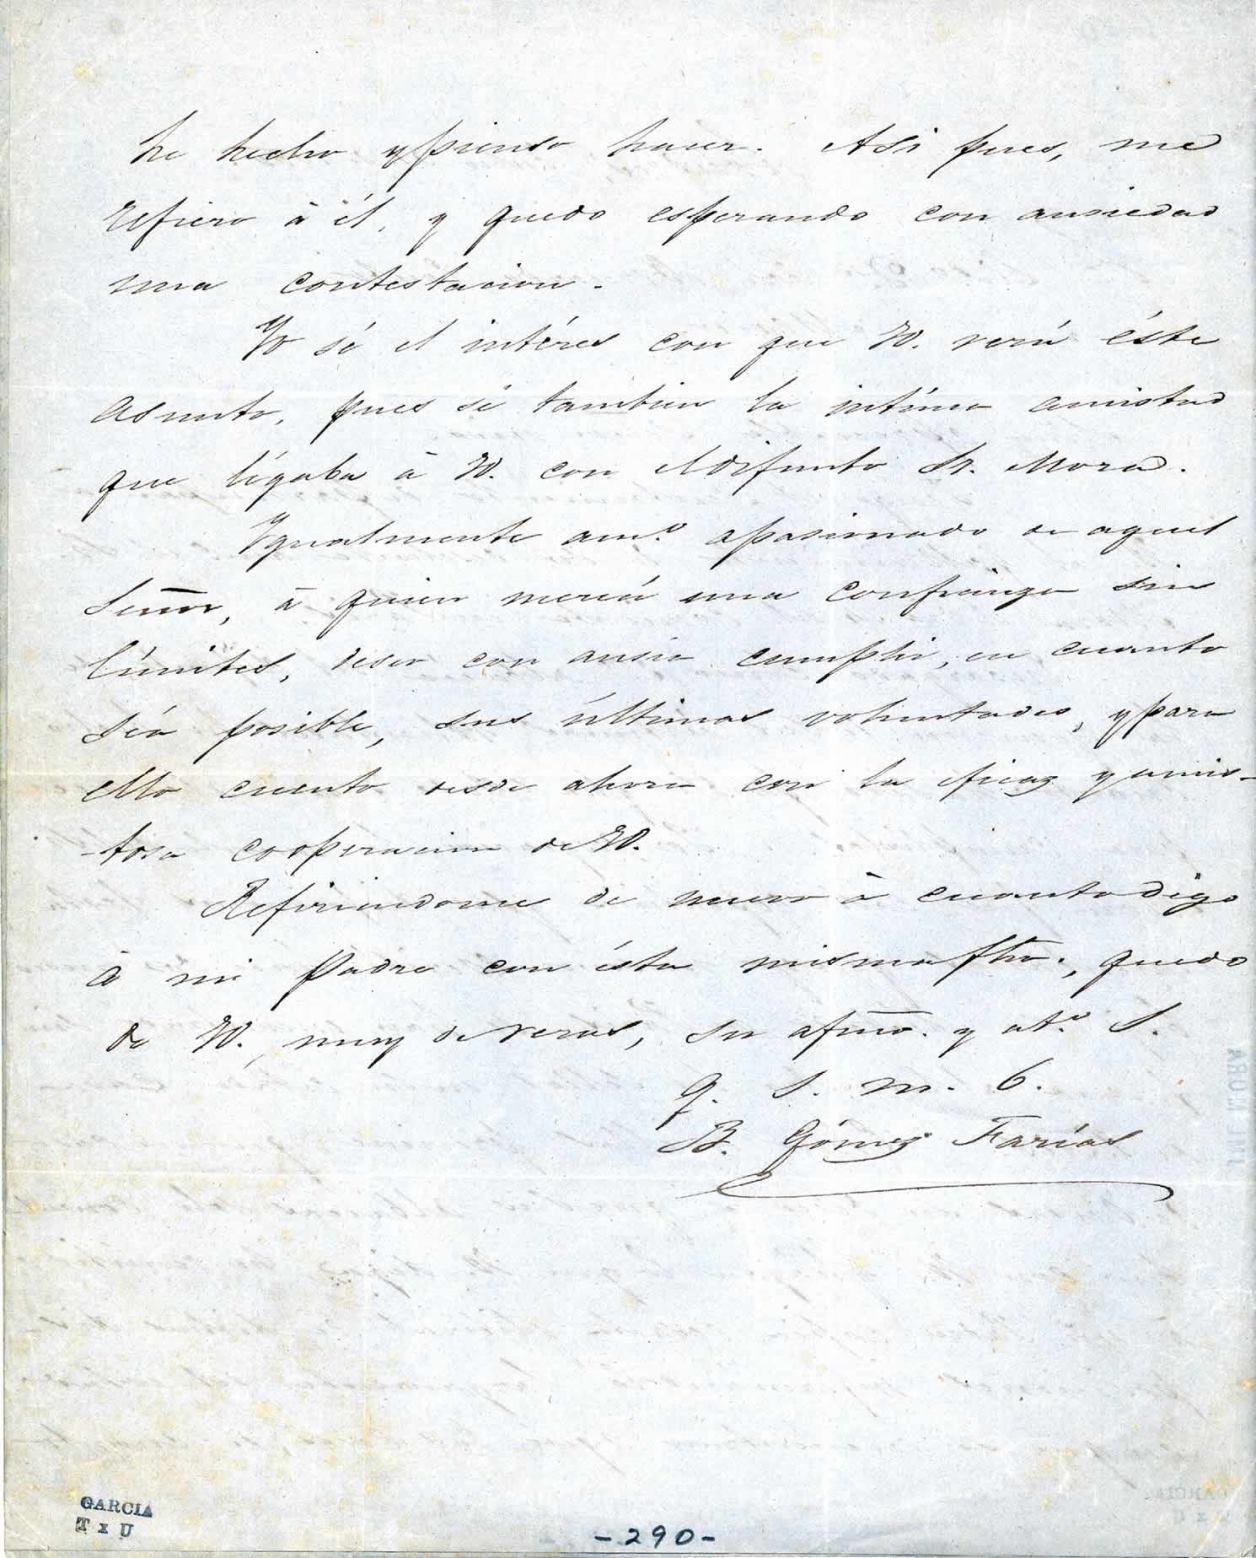 he hecho y pienso hacer. Asi pues, me
refiero á él, y quedo esperando con ansiedad
una contestacion.
Yo sé el intéres con que V. verá éste
asunto, pues sé tambien la intíma amistad
que lígaba á V. con el difunto Sr. Mora.
Ygualmente am.º apasionado de aquel
Señor, á quien merecí una confianza sin
límites, deseo con ansia cumplir, en cuanto
séa posible, sus últimas voluntades, y para
ello cuento desde ahora con la eficaz y amis-
tosa cooperacion de V.
Refiriendome de nuevo á cuanto digo
á mi Padre con ésta misma fha., quedo
de V., muy de veras, su afmo. y at.º S.
q. s. m. b.
B. Gómez Farías
GARCIA
T x U
-290-